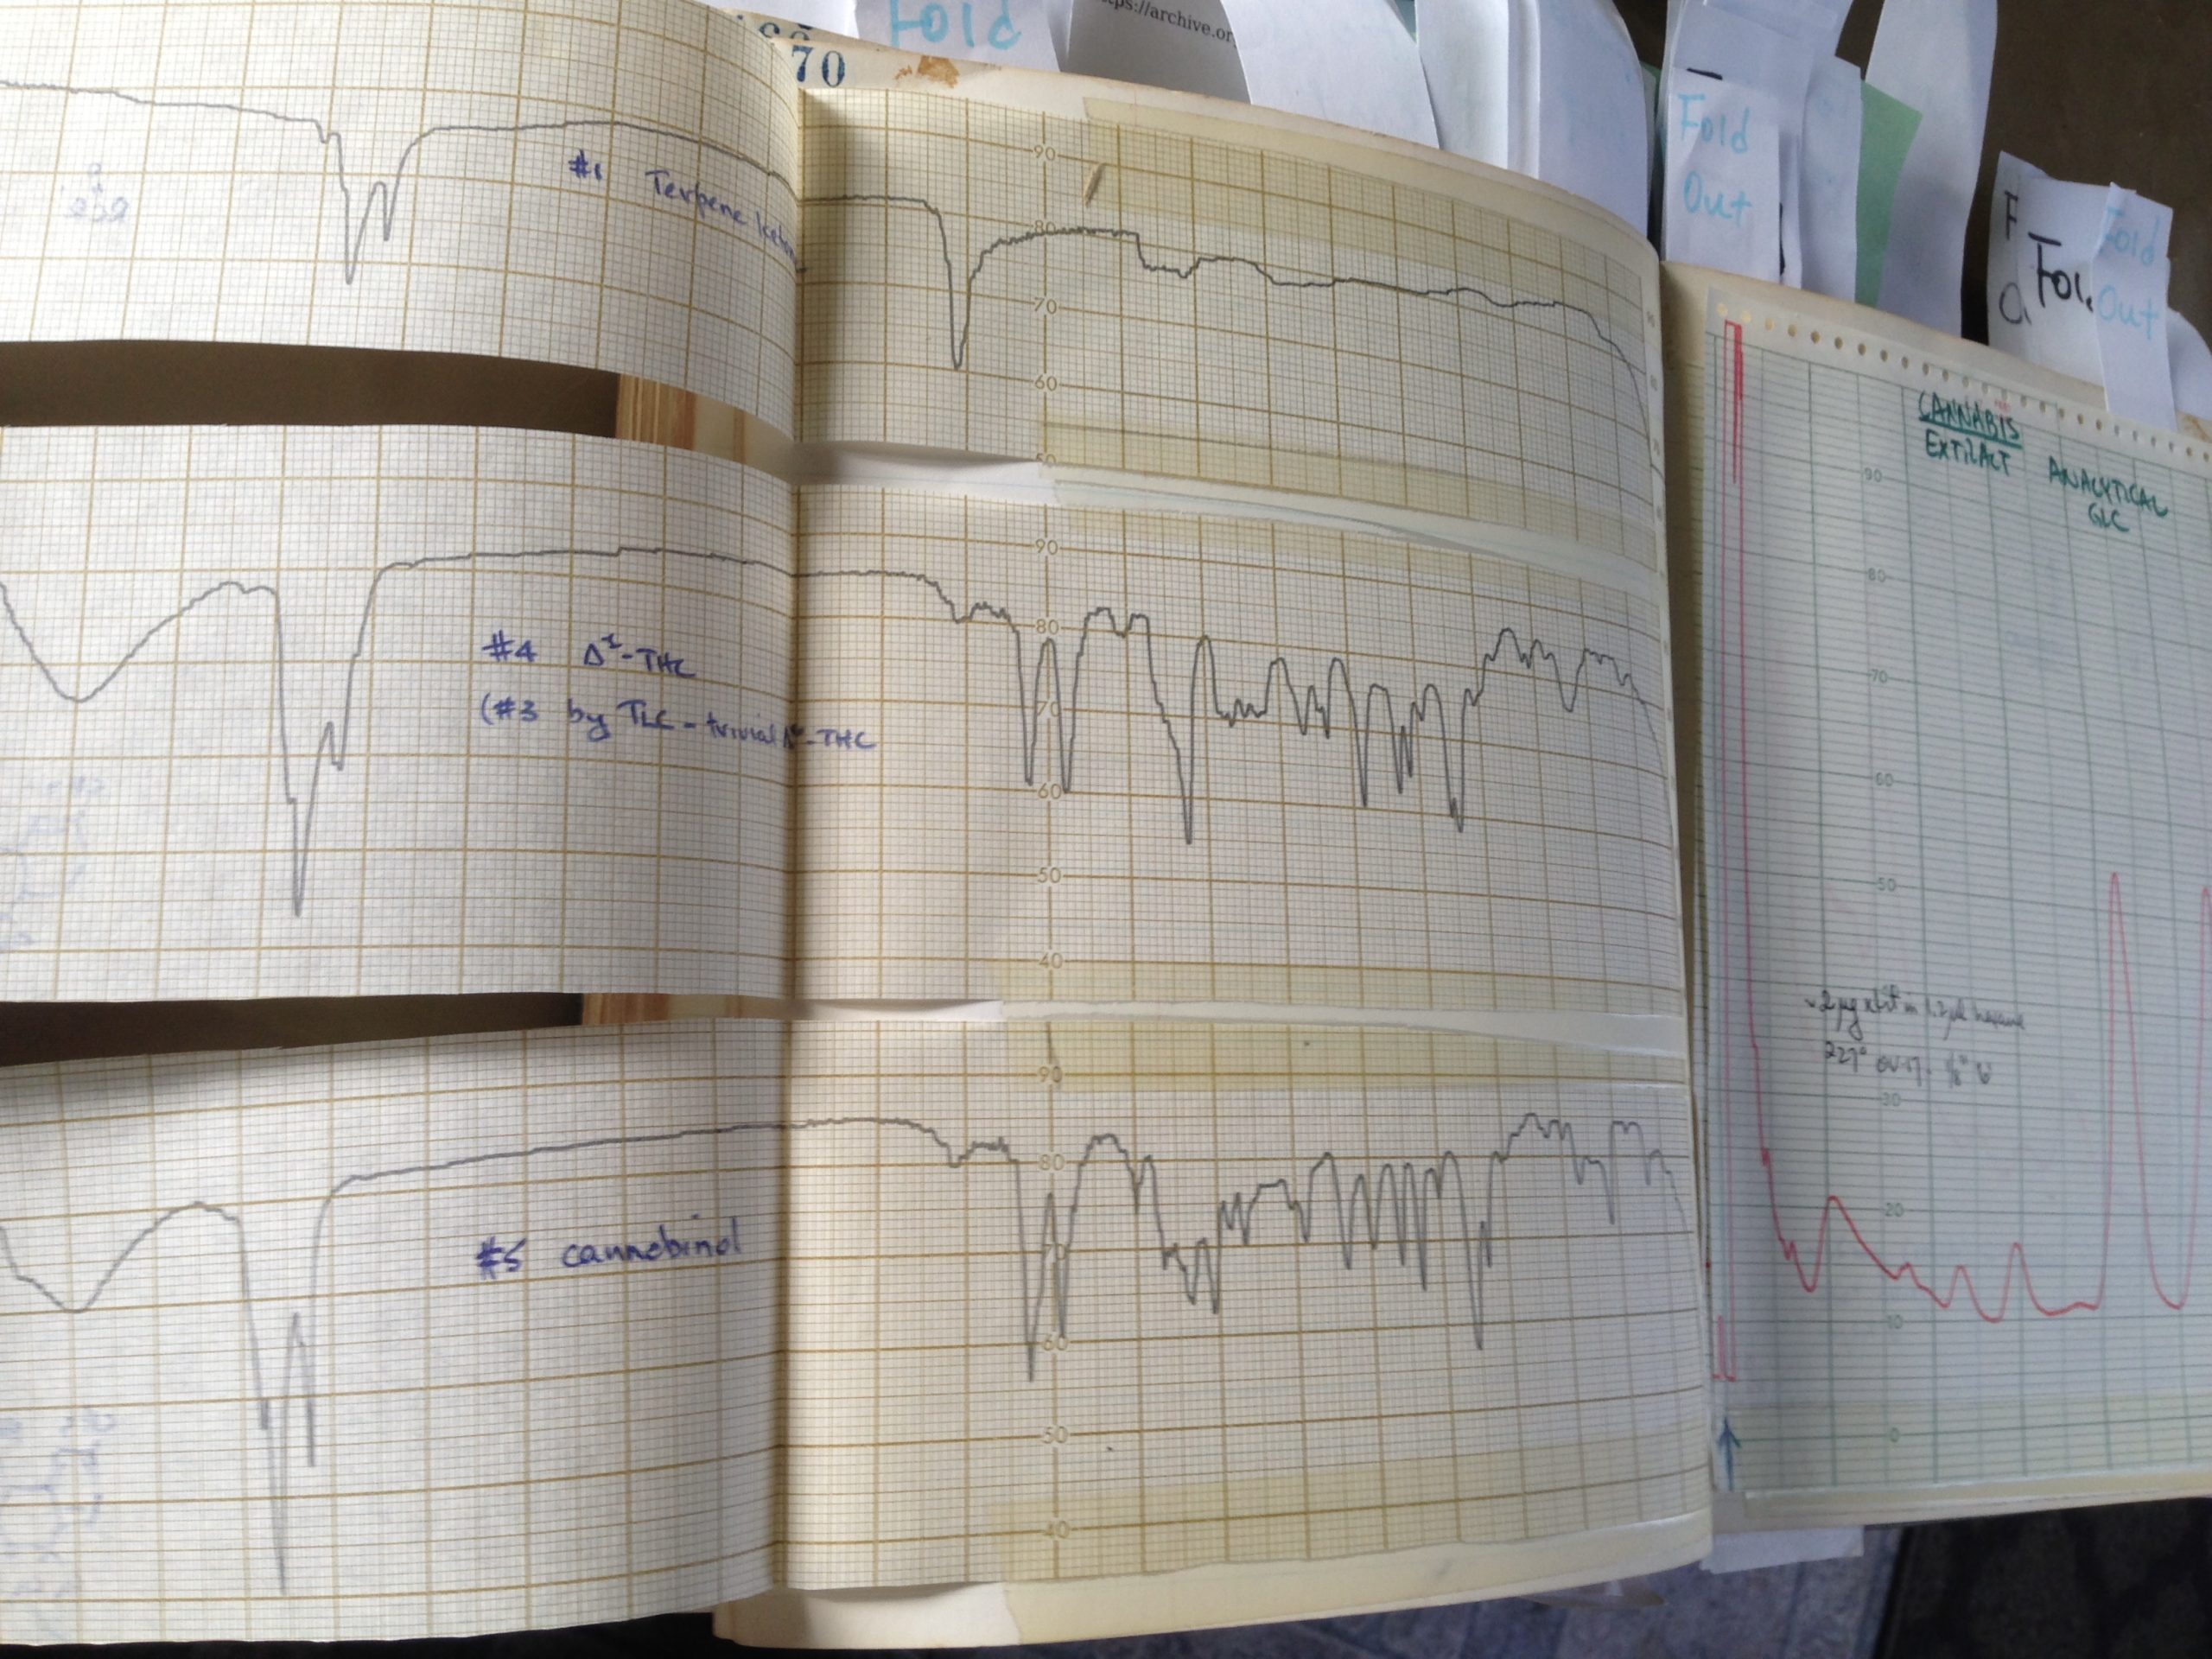 Fold
https://archive.or
70
Fold
Out
Fold
Out
Fol
#1 Terpene keton
90
80
70
60
50
#4 Δ¹-THC
(#3 by TLC - trivial -THC
90
80
70
60
50
40
#5 cannabinol
90
80
60
50
40
CANNABIS
EXTRACT ANALYTICAL
GLC
90
80
70
60
50
~2 µg in 1.2 µl hexane
227° OV-17 1/8" 6'
30
20
10
0